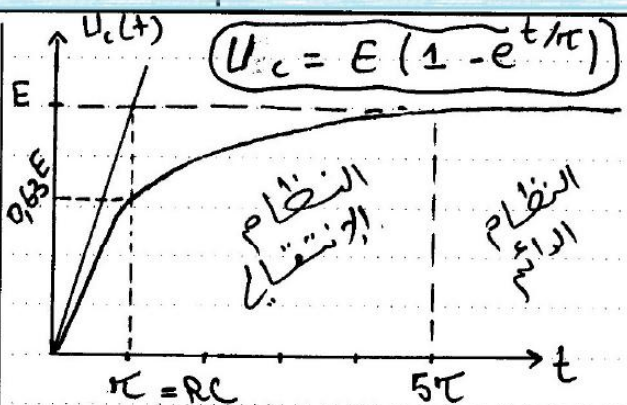 U_c(t)
U_c = E (1 - e^{t/τ})
E
0,63E
النظام
الانتقالي
النظام
الدائم
t
τ = RC
5τ